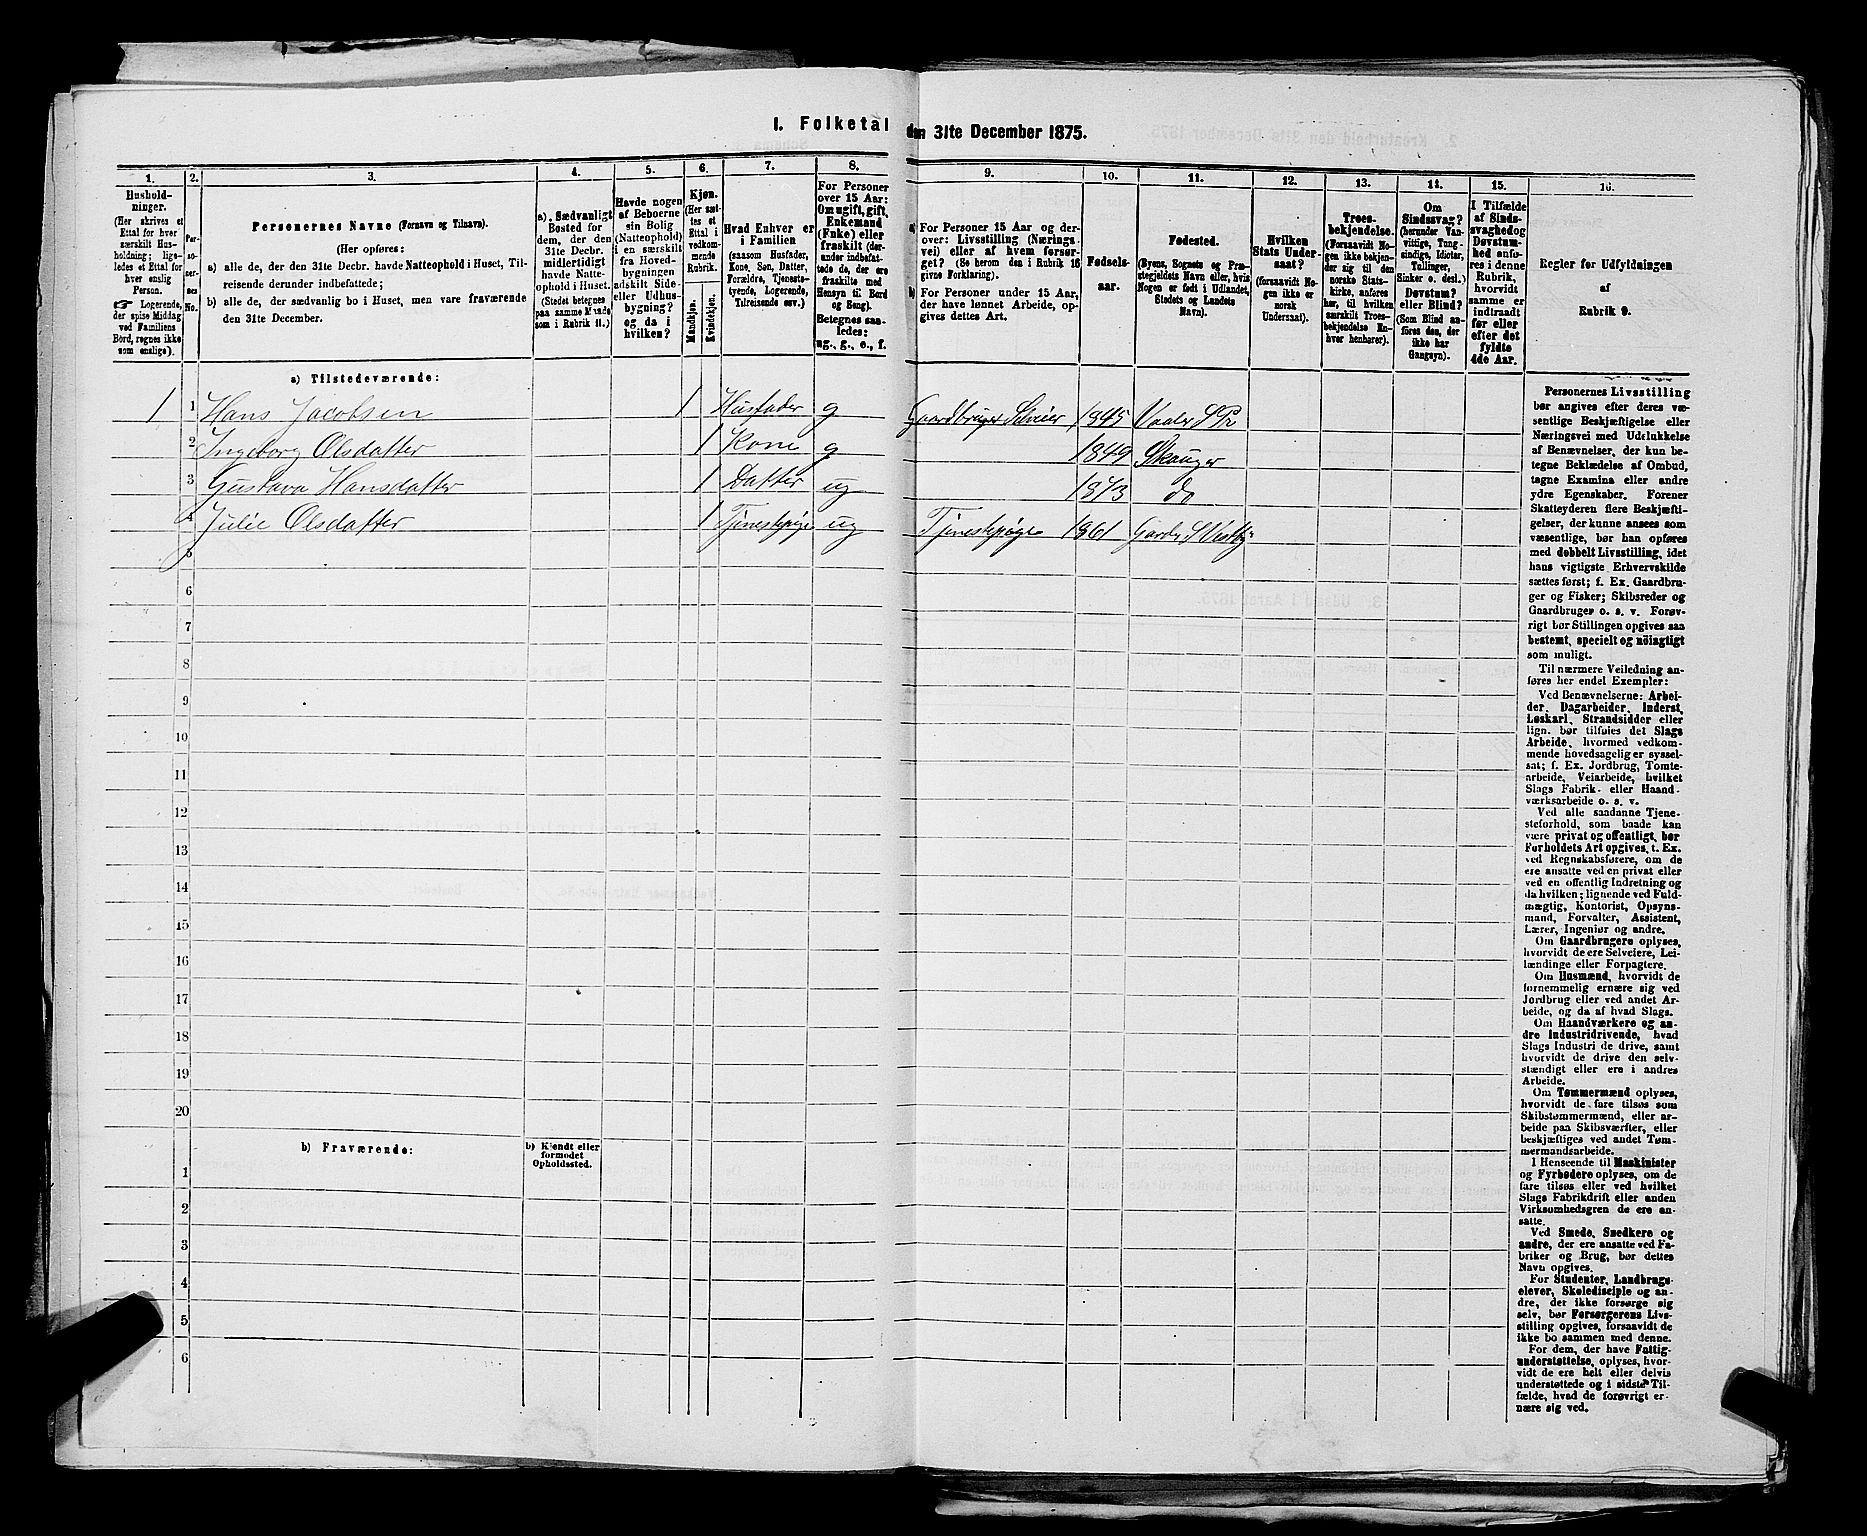 I. Folketal den 31te December 1875.
1. 2. 3. 4. 5. 6. 7. 8. 9. 10. 11. 12. 13. 14. 15. 16.
Hushold-
ninger.
(Her skrives et
Ettal for hver
særskilt Hus-
holdning; lige-
ledes et Ettal for
hver enslig
Person.
☞ Logerende,
der spise Middag
ved Familiens
Bord, regnes ikke
som enslige).
Per-
so-
ner-
nes
No.
Personernes Navne (Fornavn og Tilnavn).
(Her opføres:
a) alle de, der den 31te Decbr. havde Natteophold i Huset, Til-
reisende derunder indbefattede;
b) alle de, der sædvanlig bo i Huset, men vare fraværende
den 31te December.
a). Sædvanligt
Bosted for
dem, der den
31te Decbr.
midlertidigt
havde Natte-
ophold i Huset.
(Stedet betegnes
paa samme Maade
som i Rubrik 11.)
Havde nogen
af Beboerne
sin Bolig
(Natteophold)
i en særskilt
fra Hoved-
bygningen
adskilt Side-
eller Udhus-
bygning?
og da i
hvilken?
Kjøn.
(Her sæt-
tes et
Ettal i
vedkom-
mende
Rubrik.
Mandkjøn.
Kvindekjøn.
Hvad Enhver er
i Familien
(saasom Husfader,
Kone, Søn, Datter,
Forældre, Tjeneste-
tyende, Logerende,
Tilreisende osv.)
For Personer
over 15 Aar:
Om ugift, gift,
Enkemand
(Enke) eller
fraskilt (der-
ander indbefat-
tede de, der ere
fraskilte med
Hensyn til Bord
og Seng).
Betegnes saa-
ledes:
ug., g., e., f.
a) For Personer 15 Aar og der-
over: Livsstilling (Nærings-
vei) eller af hvem forsør-
get? (Se herom den i Rubrik 16
givne Forklaring).
b) For Personer under 15 Aar,
der have lønnet Arbeide, op-
gives dettes Art.
Fødsels-
aar.
Fødested.
(Byens, Sognets og Præ-
stegjeldets Navn eller, hvis
Nogen er født i Udlandet,
Stedets og Landets
Navn).
Hvilken
Stats Under-
saat?
(forsaavidt No-
gen ikke er
norsk
Undersaat).
Troes-
bekjendelse.
(Forsaavidt No-
gen ikke bekjen-
der sig til den
norske Stats-
kirke, anføres
her, til hvilken
særskilt Troes-
bekjendelse En-
hver henhører).
Om
Sindssvag?
(herunder Van-
vittige, Tung-
sindige, Idioter,
Tullinger,
Sinker o. desl.)
Døvstum?
eller Blind?
(Som Blind an-
føres den, der
ikke har
Gangsyn).
I Tilfælde
af Sinds-
svaghed og
Døvstum-
hed anfø-
res i denne
Rubrik,
hvorvidt
samme er
indtraadt
før eller
efter det
fyldte
4de Aar.
Regler for Udfyldningen
af
Rubrik 9.
a) Tilstedeværende:
1 1 Hans Jacobsen 1 Husfader g Gaardbruger Selveier 1845 Vaaler S Pr
2 Ingeborg Olsdatter 1 Kone g 1849 Skouger
3 Gustava Hansdatter 1 Datter ug 1873 do
4 Julie Olsdatter 1 Tjenestepige ug Tjenestepige 1861
5
6
7
8
9
10
11
12
13
14
15
16
17
18
19
20
b) Fraværende:
b) Kjendt eller
formodet
Opholdssted.
1
2
3
4
5
6
Personernes Livsstilling
bør angives efter deres væ-
sentlige Beskjæftigelse eller
Næringsvei med Udelukkelse
af Benævnelser, der kun be-
tegne Beklædelse af Ombud,
tagne Examina eller andre
ydre Egenskaber. Forener
Skatteyderen flere Beskjæfti-
gelser, der kunne ansees som
væsentlige, bør han opføres
med dobbelt Livsstilling, idet
hans vigtigste Erhvervskilde
sættes først; f. Ex. Gaardbru-
ger og Fisker; Skibsreder og
Gaardbruger o. s. v. Forøv-
rigt bør Stillingen opgives saa
bestemt, specielt og nöiagtigt
som muligt.
Til nærmere Veiledning an-
føres her endel Exempler:
Ved Benævnelserne: Arbei-
der, Dagarbeider, Inderst,
Løskarl, Strandsidder eller
lign. bør tilføies det Slags
Arbeide, hvormed vedkom-
mende hovedsagelig er syssel-
sat; f. Ex. Jordbrug, Tomte-
arbeide, Veiarbeide, hvilket
Slags Fabrik- eller Haand-
værksarbeide o. s. v.
Ved alle saadanne Tjene-
steforhold, som baade kan
være privat og offentligt, bør
Forholdets Art opgives, t. Ex.
ved Regnskabsførere, om de
ere ansatte ved en privat eller
ved en offentlig Indretning og
da hvilken; lignende ved Fuld-
mægtig, Kontorist, Opsyns-
mand, Forvalter, Assistent,
Lærer, Ingeniør og andre.
Om Gaardbrugere oplyses,
hvorvidt de ere Selveiere, Lei-
lændinge eller Forpagtere.
Om Husmænd, hvorvidt de
fornemmelig ernære sig ved
Jordbrug eller ved andet Ar-
beide, og da af hvad Slags.
Om Haandværkere og an-
dre Industridrivende, hvad
Slags Industri de drive, samt
hvorvidt de drive den selv-
stændigt eller ere i andres
Arbeide.
Om Tømmermænd oplyses,
hvorvidt de fare tilsøs som
Skibstømmermænd, eller ar-
beide paa Skibsværfter, eller
beskjæftiges ved andet Tøm-
mermandsarbeide.
I Henseende til Maskinister
og Fyrbødere oplyses, om de
fare tilsøs eller ved hvilket
Slags Fabrikdrift eller anden
Virksomhedsgren de ere an-
satte.
Ved Smede, Snedkere og
andre, der ere ansatte ved Fa-
briker og Brug, bør dettes
Navn opgives.
For Studenter, Landbrugs-
elever, Skoledisciple og an-
dre, der ikke forsørge sig
selv, bør Forsørgerens Livs-
stilling opgives, forsaavidt de
ikke bo sammen med denne.
For dem, der have Fattig-
understøttelse, oplyses, hvor-
vidt de ere helt eller delvis
understøttede og i sidste Til-
fælde, hvad de forøvrigt er-
nære sig ved.